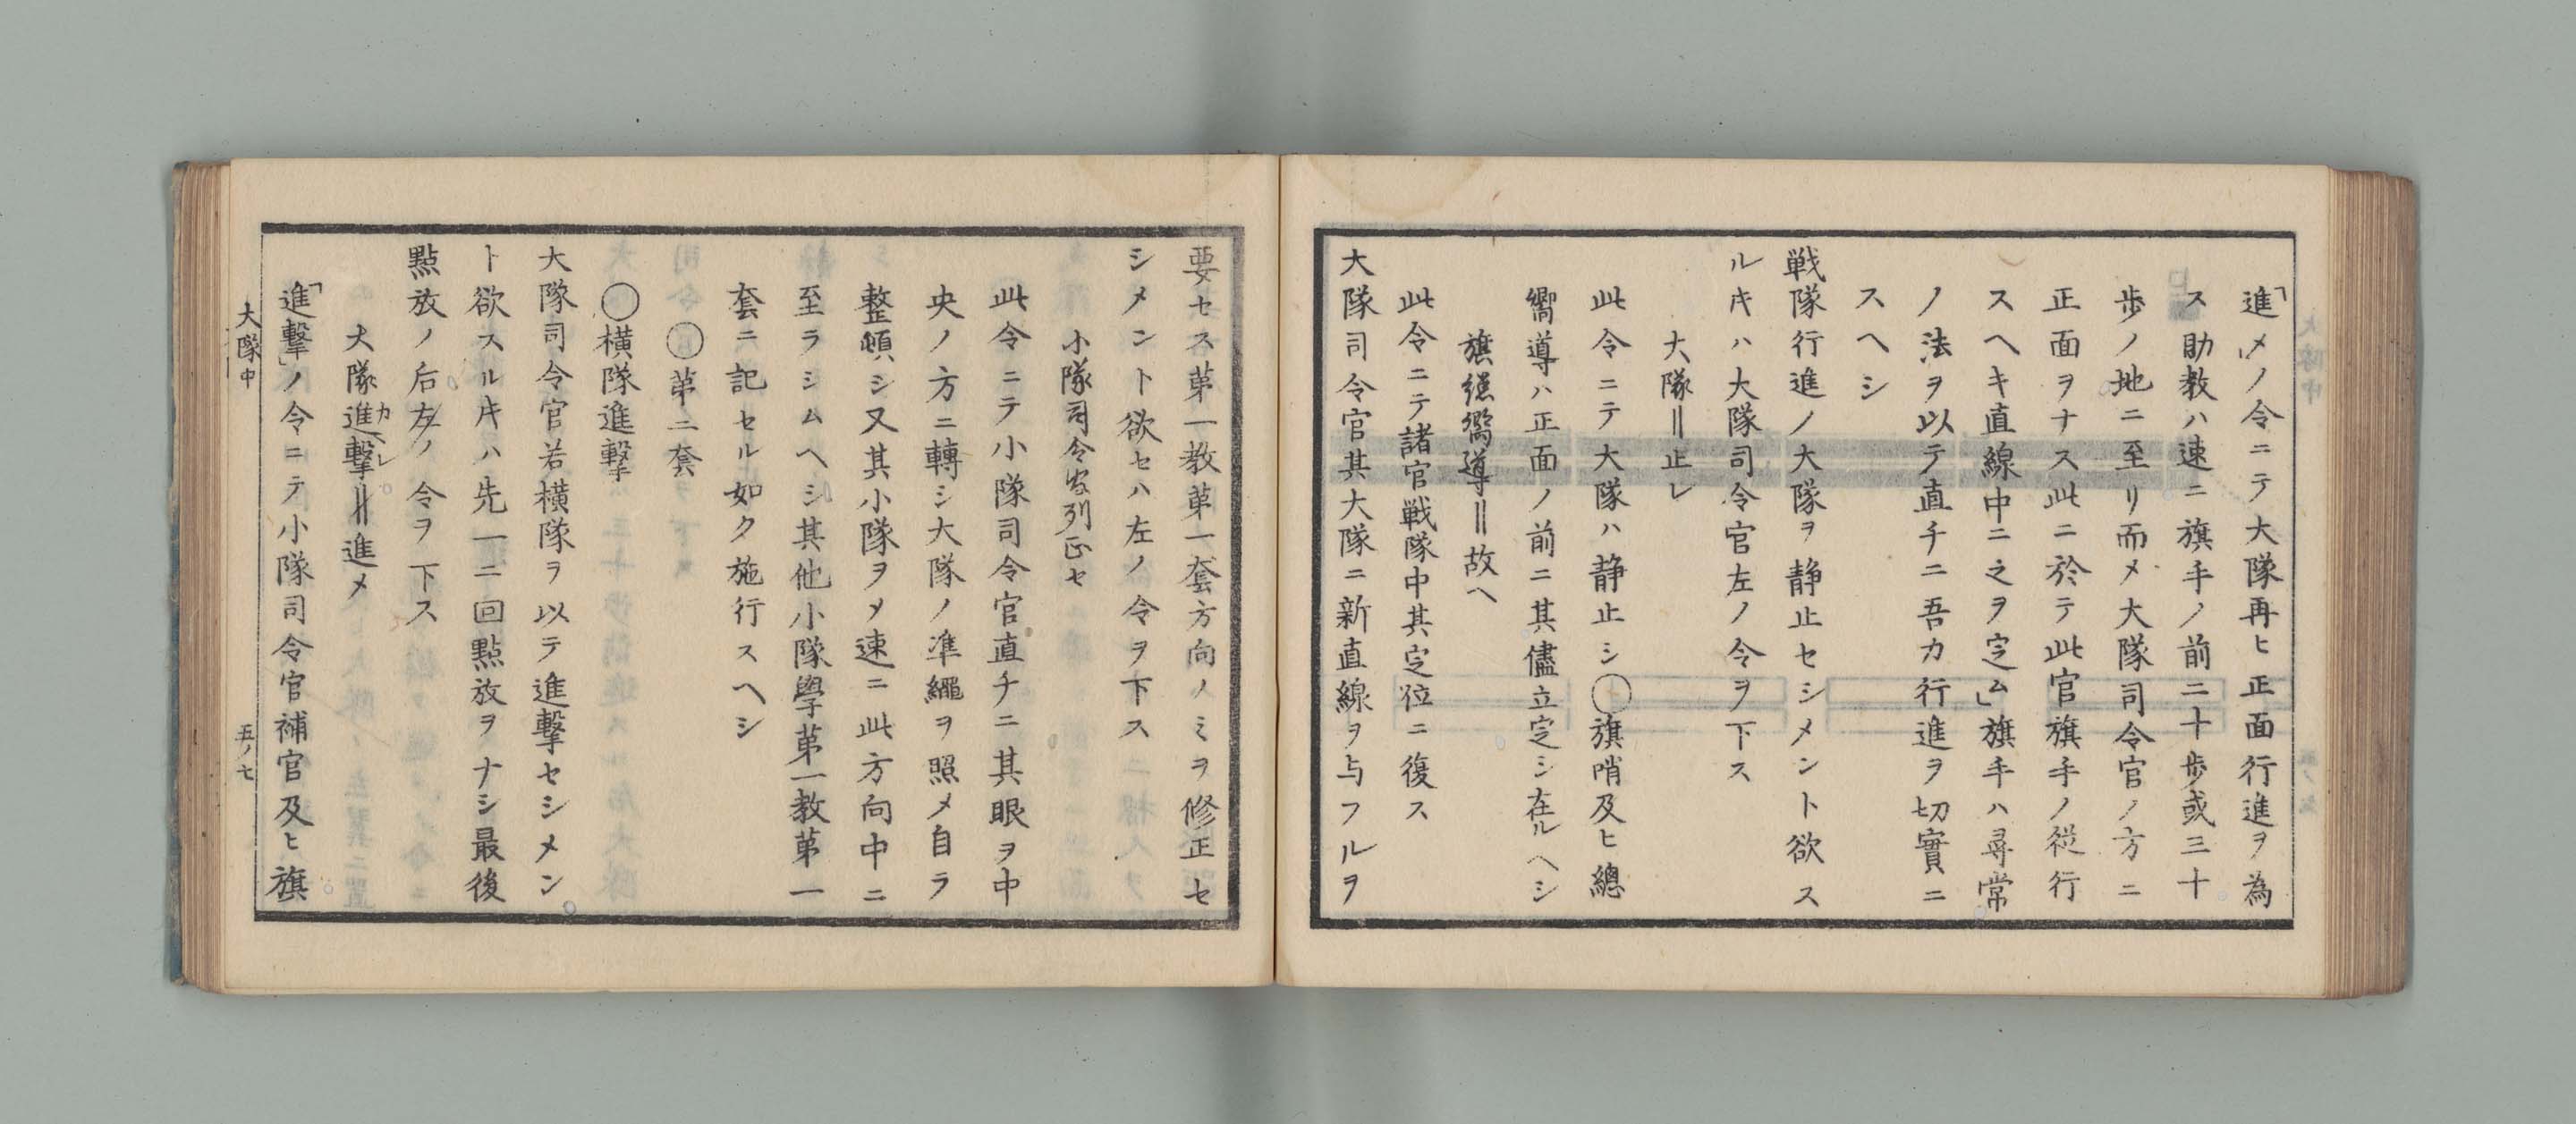 「進メ」ノ令ニテ大隊再ヒ正面行進ヲ為
ス助教ハ速ニ旗手ノ前二十歩或三十
歩ノ地ニ至リ而メ大隊司令官ノ方ニ
正面ヲナス此ニ於テ此官旗手ノ従行
スヘキ直線中ニ之ヲ定ム」旗手ハ尋常
ノ法ヲ以テ直チニ吾カ行進ヲ切實ニ
スヘシ
戦隊行進ノ大隊ヲ静止セシメント欲ス
ルキハ大隊司令官左ノ令ヲ下ス
大隊‖止レ
此令ニテ大隊ハ静止シ◯旗哨及ヒ總
嚮導ハ正面ノ前ニ其儘立定シ在ルヘシ
旗總嚮導‖故ヘ
此令ニテ諸官戦隊中其定位ニ復ス
大隊司令官其大隊ニ新直線ヲ与フルヲ
要セス第一教第一套方向ノミヲ修正セ
シメント欲セハ左ノ令ヲ下ス
小隊司令官列正セ
此令ニテ小隊司令官直チニ其眼ヲ中
央ノ方ニ轉シ大隊ノ準繩ヲ照メ自ラ
整頓シ又其小隊ヲメ速ニ此方向中ニ
至ラシムヘシ其他小隊學第一教第一
套ニ記セル如ク施行スヘシ
◯第二套
◯横隊進撃
大隊司令官若横隊ヲ以テ進撃セシメン
ト欲スルキハ先一二回點放ヲナシ最後
點放ノ后左ノ令ヲ下ス
大隊進撃カヽレ‖進メ
「進撃」ノ令ニテ小隊司令官補官及ヒ旗
大隊中
五ノ七